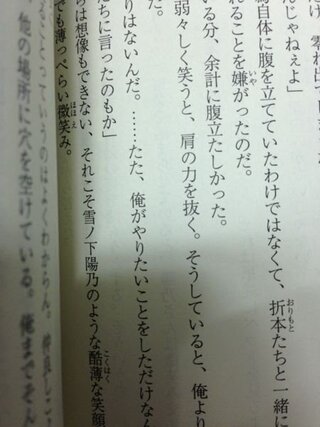 け、零れ出
んじゃねぇよ」
為自体に腹を立てていたわけではなくて、折本たちと一緒に
れることを嫌がったのだ。
いる分、余計に腹立たしかった。
弱々しく笑うと、肩の力を抜く。そうしていると、俺より
だ。
りはないんだ。……ただ、俺がやりたいことをしただけなん
ちに言ったのもか」
は想像もできない、それこそ雪ノ下陽乃のような酷薄な笑顔
でも薄っぺらい微笑み。
っていうのはよくわからん。
他の場所に穴を空けている。俺までそん